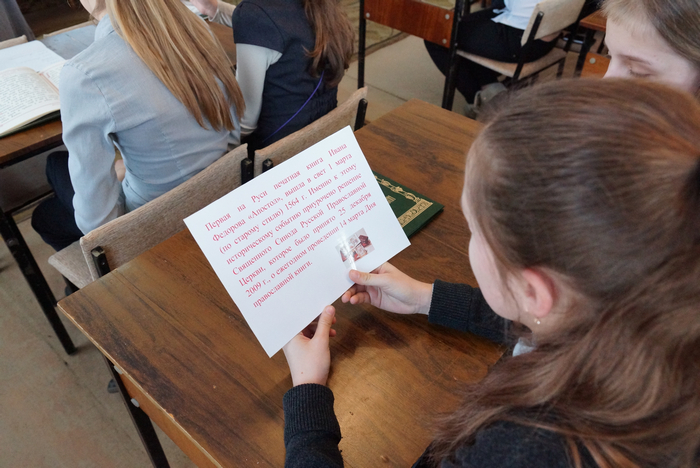 Первая на Руси печатная книга Ивана
Федорова «Апостол», вышла в свет 1 марта
(по старому стилю) 1564 г. Именно к этому
историческому событию приурочено решение
Священного Синода Русской Православной
Церкви, которое было принято 25 декабря
2009 г., о ежегодном проведении 14 марта Дня
православной книги.